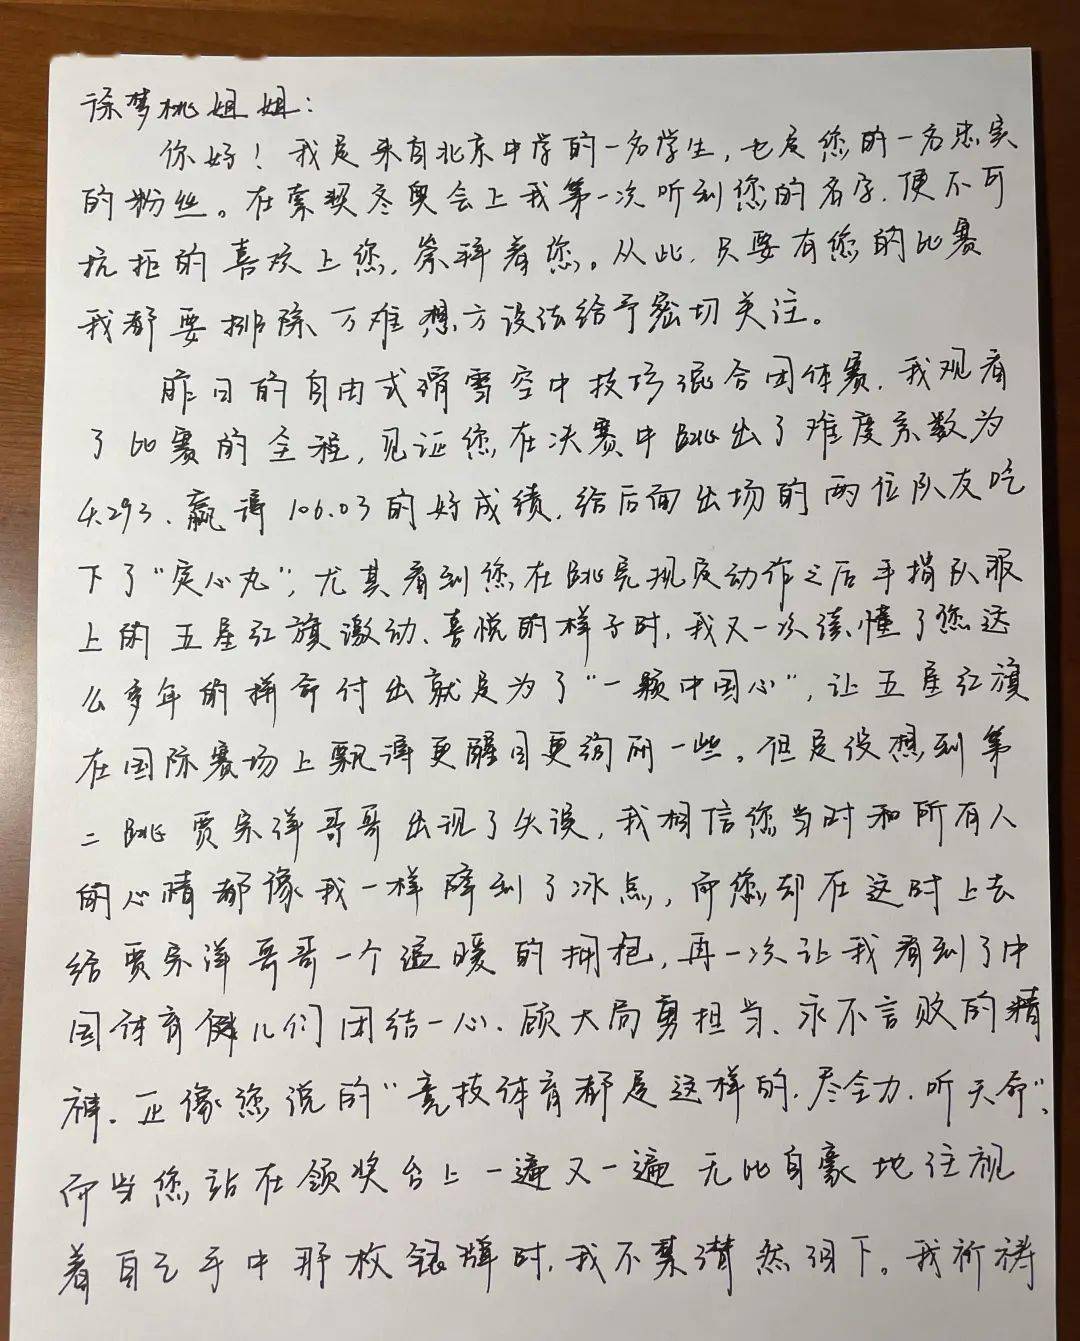 徐梦桃姐姐:
你好！我是来自北京中学的一名学生，也是您的一名忠实
的粉丝。在索契冬奥会上我第一次听到您的名字，便不可
抗拒的喜欢上您，崇拜着您。从此，只要有您的比赛
我都要排除万难想方设法给予密切关注。
昨日的自由式滑雪空中技巧混合团体赛，我观看
了比赛的全程，见证您在决赛中跳出了难度系数为
4.293、赢得106.03的好成绩，给后面出场的两位队友吃
下了“定心丸”，尤其看到您在跳完规定动作之后手指队服
上的五星红旗激动、喜悦的样子时，我又一次读懂了您这
么多年的拼命付出就是为了“一颗中国心”，让五星红旗
在国际赛场上飘得更醒目更绚丽一些。但是没想到第
二跳贾宗洋哥哥出现了失误，我相信您当时和所有人
的心情都像我一样降到了冰点，而您却在这时上去
给贾宗洋哥哥一个温暖的拥抱，再一次让我看到了中
国体育健儿们团结一心、顾大局勇担当、永不言败的精
神。正像您说的“竞技体育都是这样的，尽全力，听天命”、
而当您站在领奖台上一遍又一遍无比自豪地注视
着自己手中那枚银牌时，我不禁潸然泪下。我祈祷